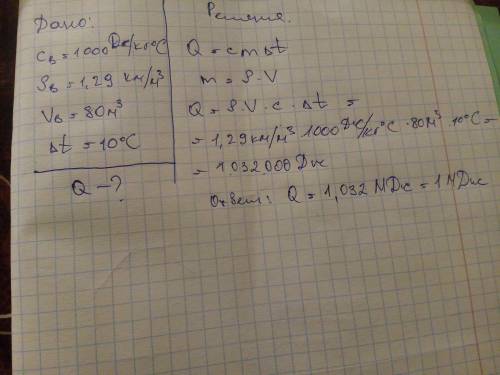 Дано:
cв = 1000 Дж/кг°C
ρв = 1,29 км/м³
Vв = 80м³
Δt = 10°C
Q – ?
Решение.
Q = cmΔt
m = ρ·V
Q = ρ·V·c·Δt =
= 1,29км/м³·1000Дж/кг°C·80м³·10°C =
= 1032000 Дж
Ответ: Q = 1,032 МДж = 1 МДж